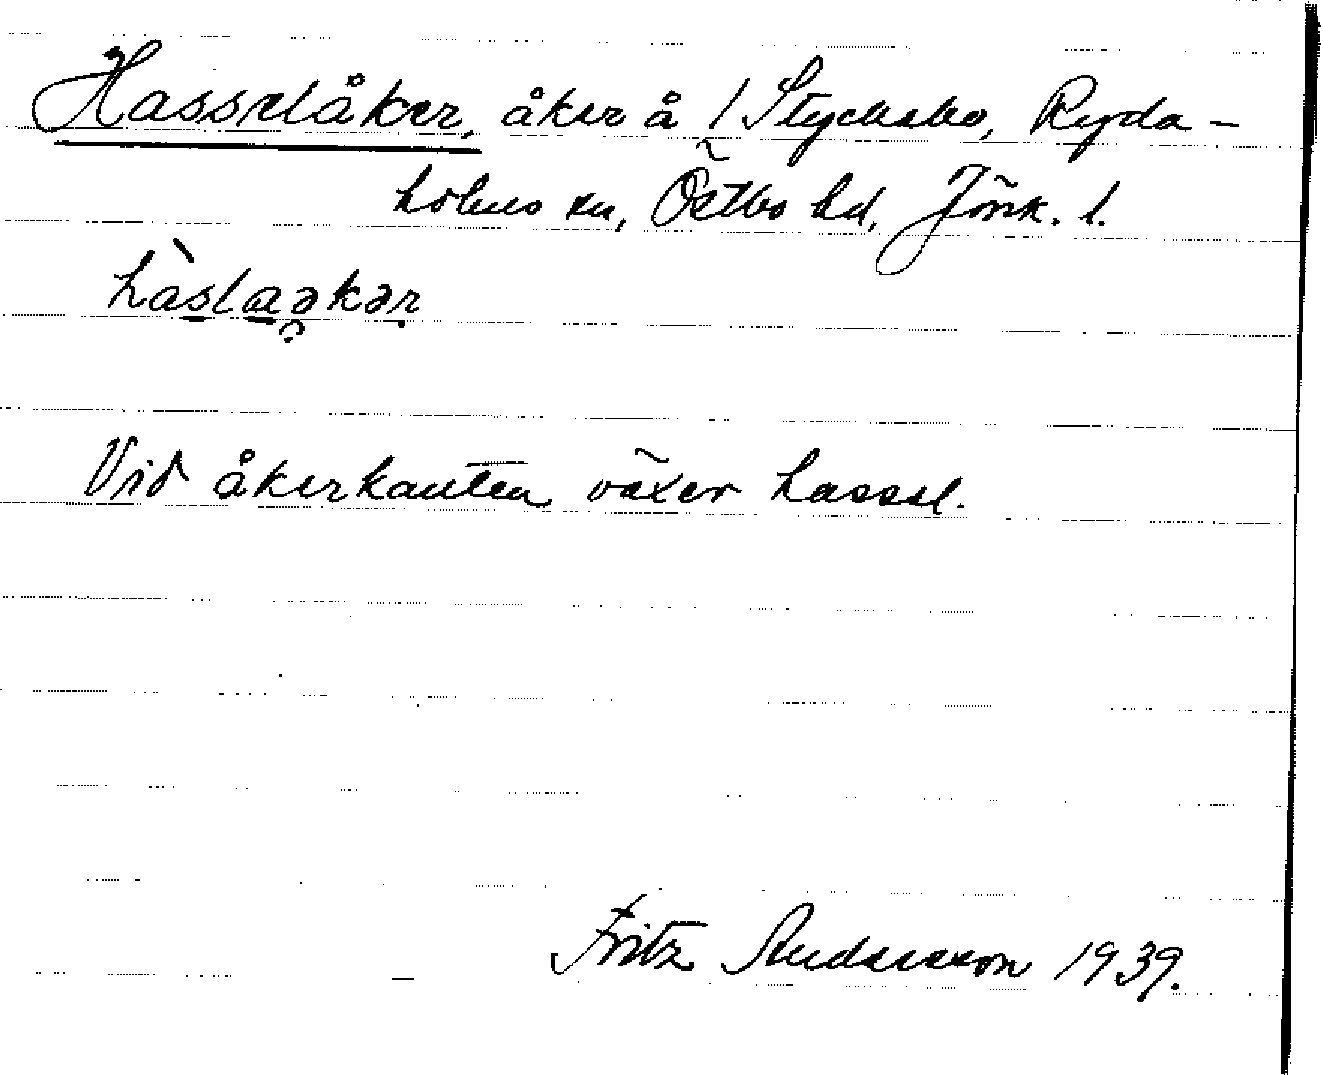 Hasselåker, åker å 1 Stycksbo, Ryda-
holms sn, Östbo hd, Jönk. l.
Vid åkerkanten växer hassel.
Fritz Andersson 1939.